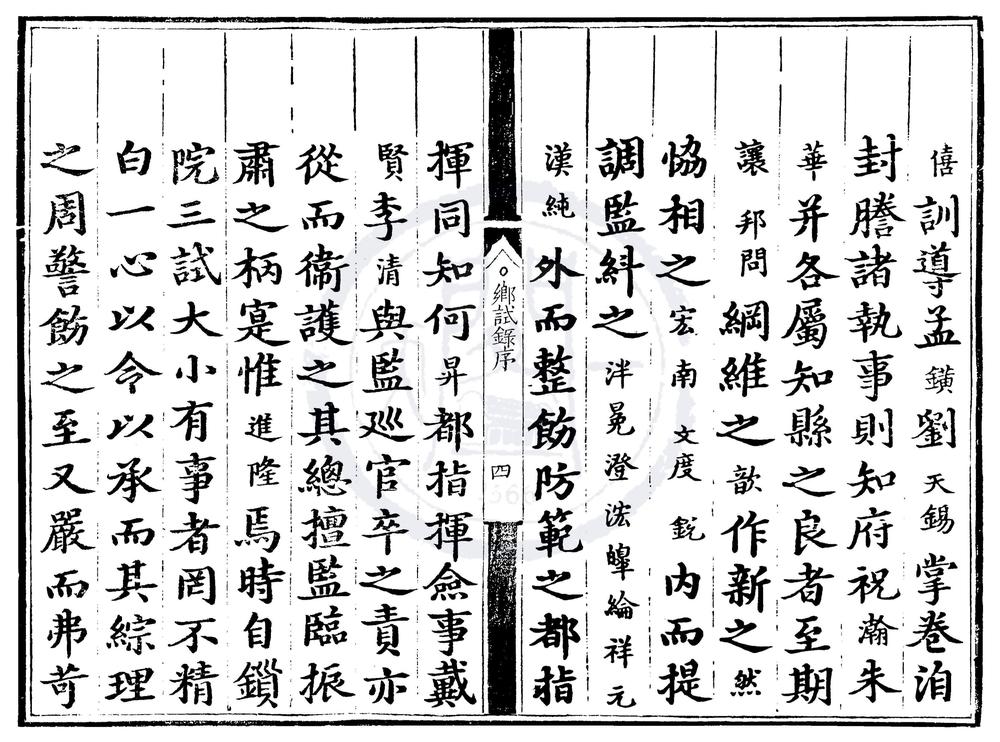 僖訓導孟鐄劉天錫掌卷洎
封謄諸執事則知府祝瀚朱
華并各屬知縣之良者至期
讓邦問綱維之歆作新之然
恊相之宏南文度鋭内而提
調監糾之泮冕澄浤皞綸祥元
漢純外而整飭防範之都指
鄉試錄序
四
揮同知何昇都指揮僉事戴
賢李清與監巡官卒之責亦
從而衞護之其總擅監臨振
肅之柄寔惟進隆焉時自鎻
院三試大小有事者罔不精
白一心以令以承而其綜理
之周警飭之至又嚴而弗苛